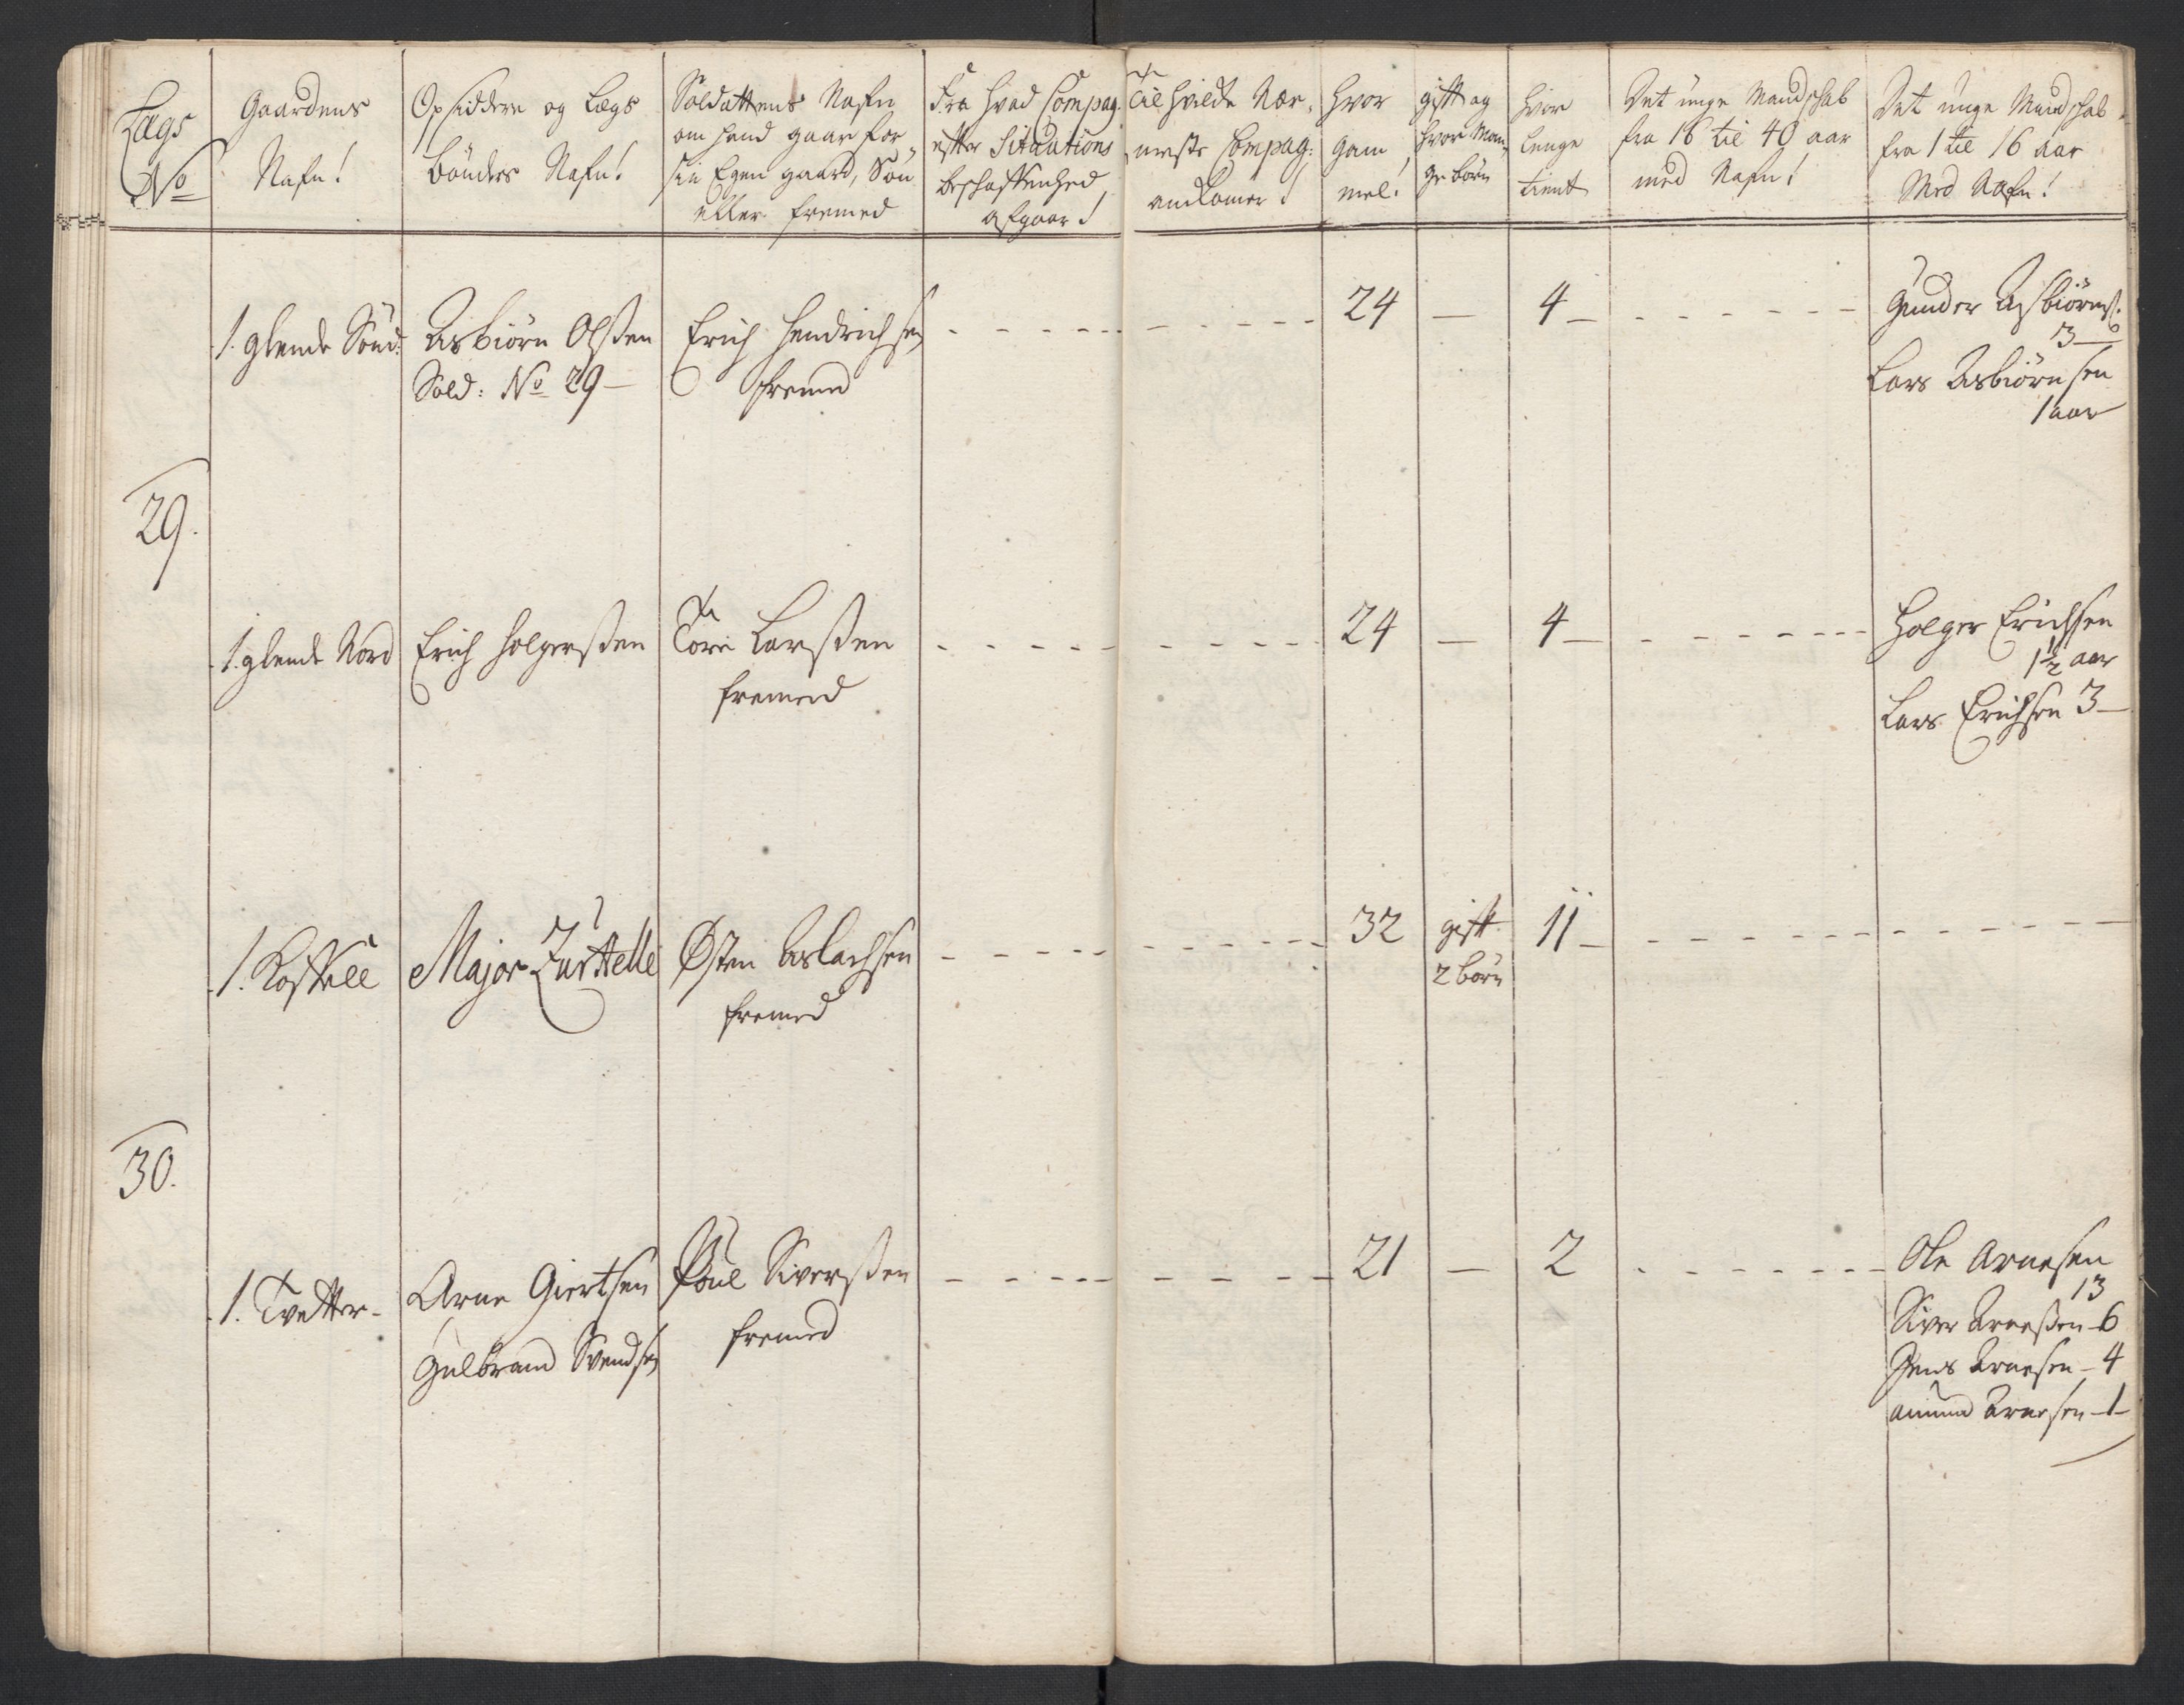 Lægs
No
Gaardens
Nafn!
Opsiddere og Lægs
Bönders Nafn!
Soldattens Nafn
om hand gaar for
sin Egen gaard, Sön
eller fremed
Fra hvad Compag.
efter Situations
beschaffenhed
afgaar!
Til hvilcke Nær-
meste Compag:
ankomer!
Hvor
gam
mel!
gift og
hvor Man
ge börn
Hvor
lenge
tient
Det unge Mandschab
fra 16 til 40 aar
med Nafn!
Det unge Mandschab
fra 1 til 16 aar
Med Nafn!
29.
1. glende Sönd:
Asbiörn Olsen
Sold: No 29
Erich Hendrichsen
fremd
24
4
Gunder Asbiörns.
3
Lars Asbiörnsen
1 aar
1. glende Nord
Erich Holgersen
Tore Larsen
fremed
24
4
Holger Erichsen
1½ aar
Lars Erichsen 3
30.
1.
Major
Østen Aslachsen
fremed
32
gift
2 börn
11
1. Tvetter
Arne Giertsen
Gulbrand Svendsen
Poul Siversen
fremed
21
2
Ole Arnesen
13
Siver Arnesen 6
Jens Arnesen 4
Amund Arnesen 1